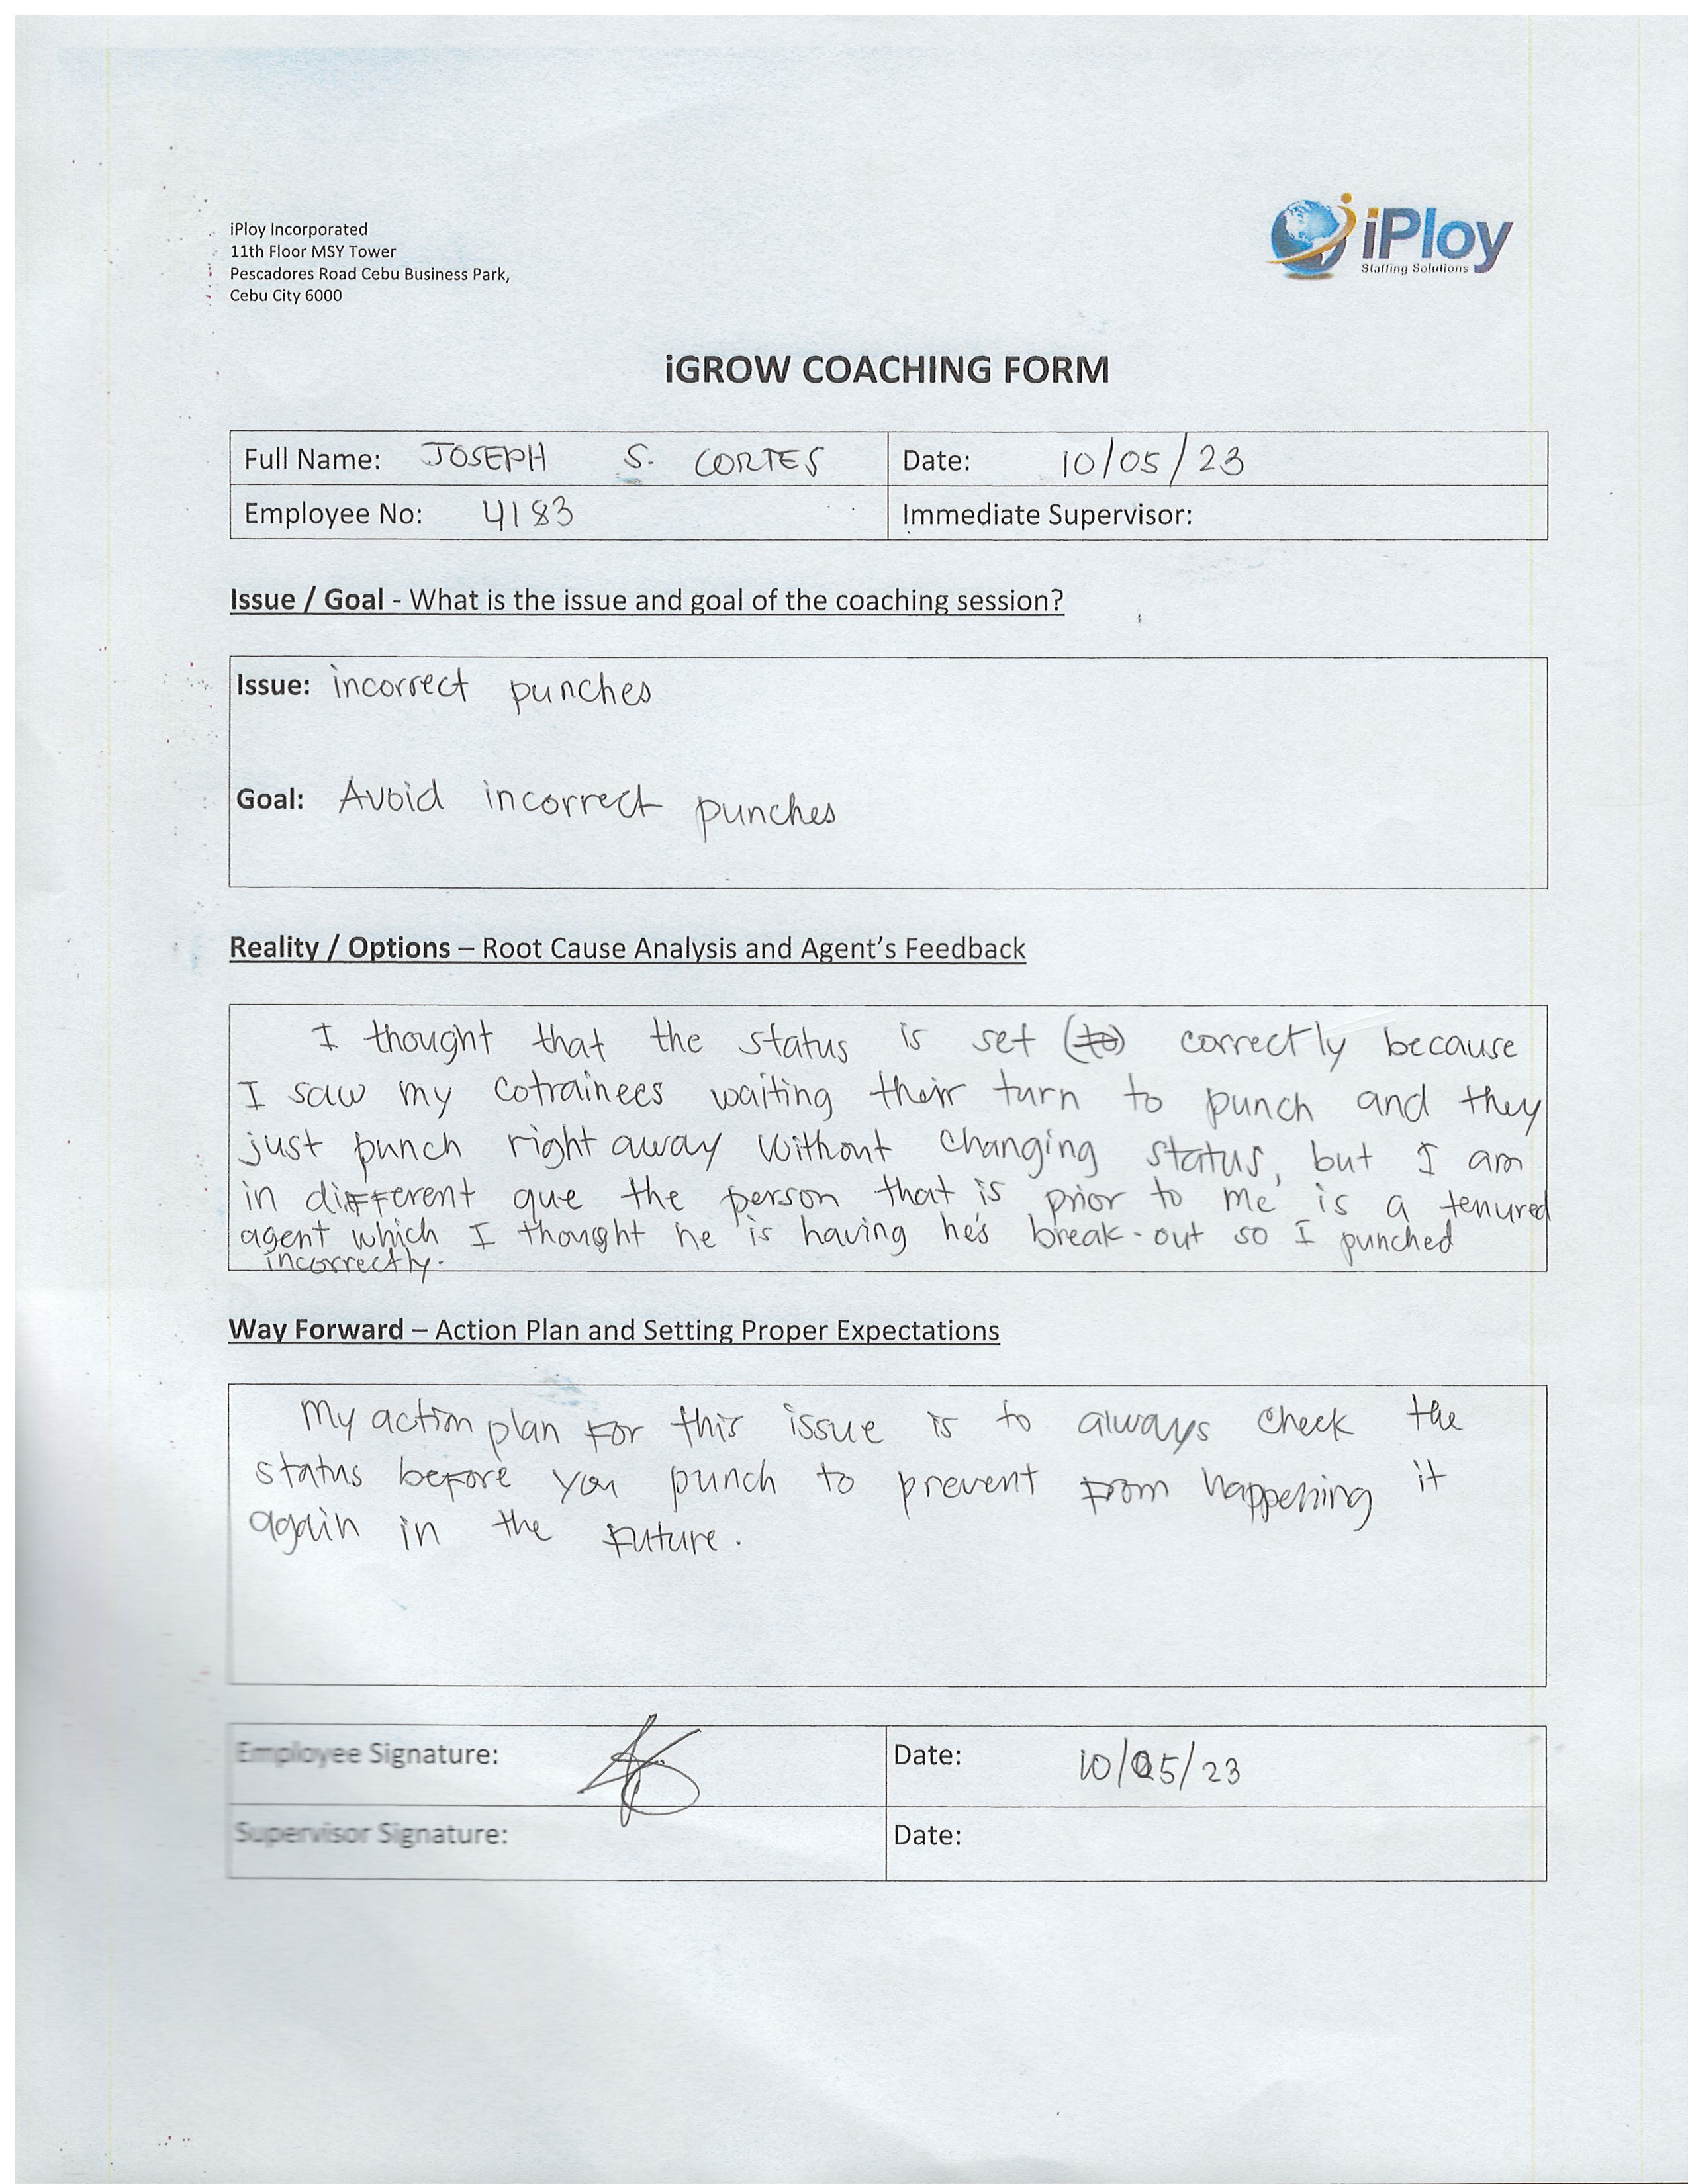 iPloy Incorporated
11th Floor MSY Tower
Pescadores Road Cebu Business Park,
Cebu City 6000
iPloy
Staffing Solutions
iGROW COACHING FORM
Full Name: JOSEPH S. CORTES Date: 10/05/23
Employee No: 4183 Immediate Supervisor:
Issue / Goal - What is the issue and goal of the coaching session?
Issue: incorrect punches
Goal: Avoid incorrect punches
Reality / Options – Root Cause Analysis and Agent's Feedback
I thought that the status is set (to) correctly because
I saw my cotrainees waiting their turn to punch and they
just punch right away without changing status, but I am
in different que the person that is prior to me is a tenured
agent which I thought he is having he's break-out so I punched
incorrectly.
Way Forward – Action Plan and Setting Proper Expectations
My action plan for this issue is to always check the
status before you punch to prevent from happening it
again in the future.
Employee Signature: Date: 10/05/23
Supervisor Signature: Date: